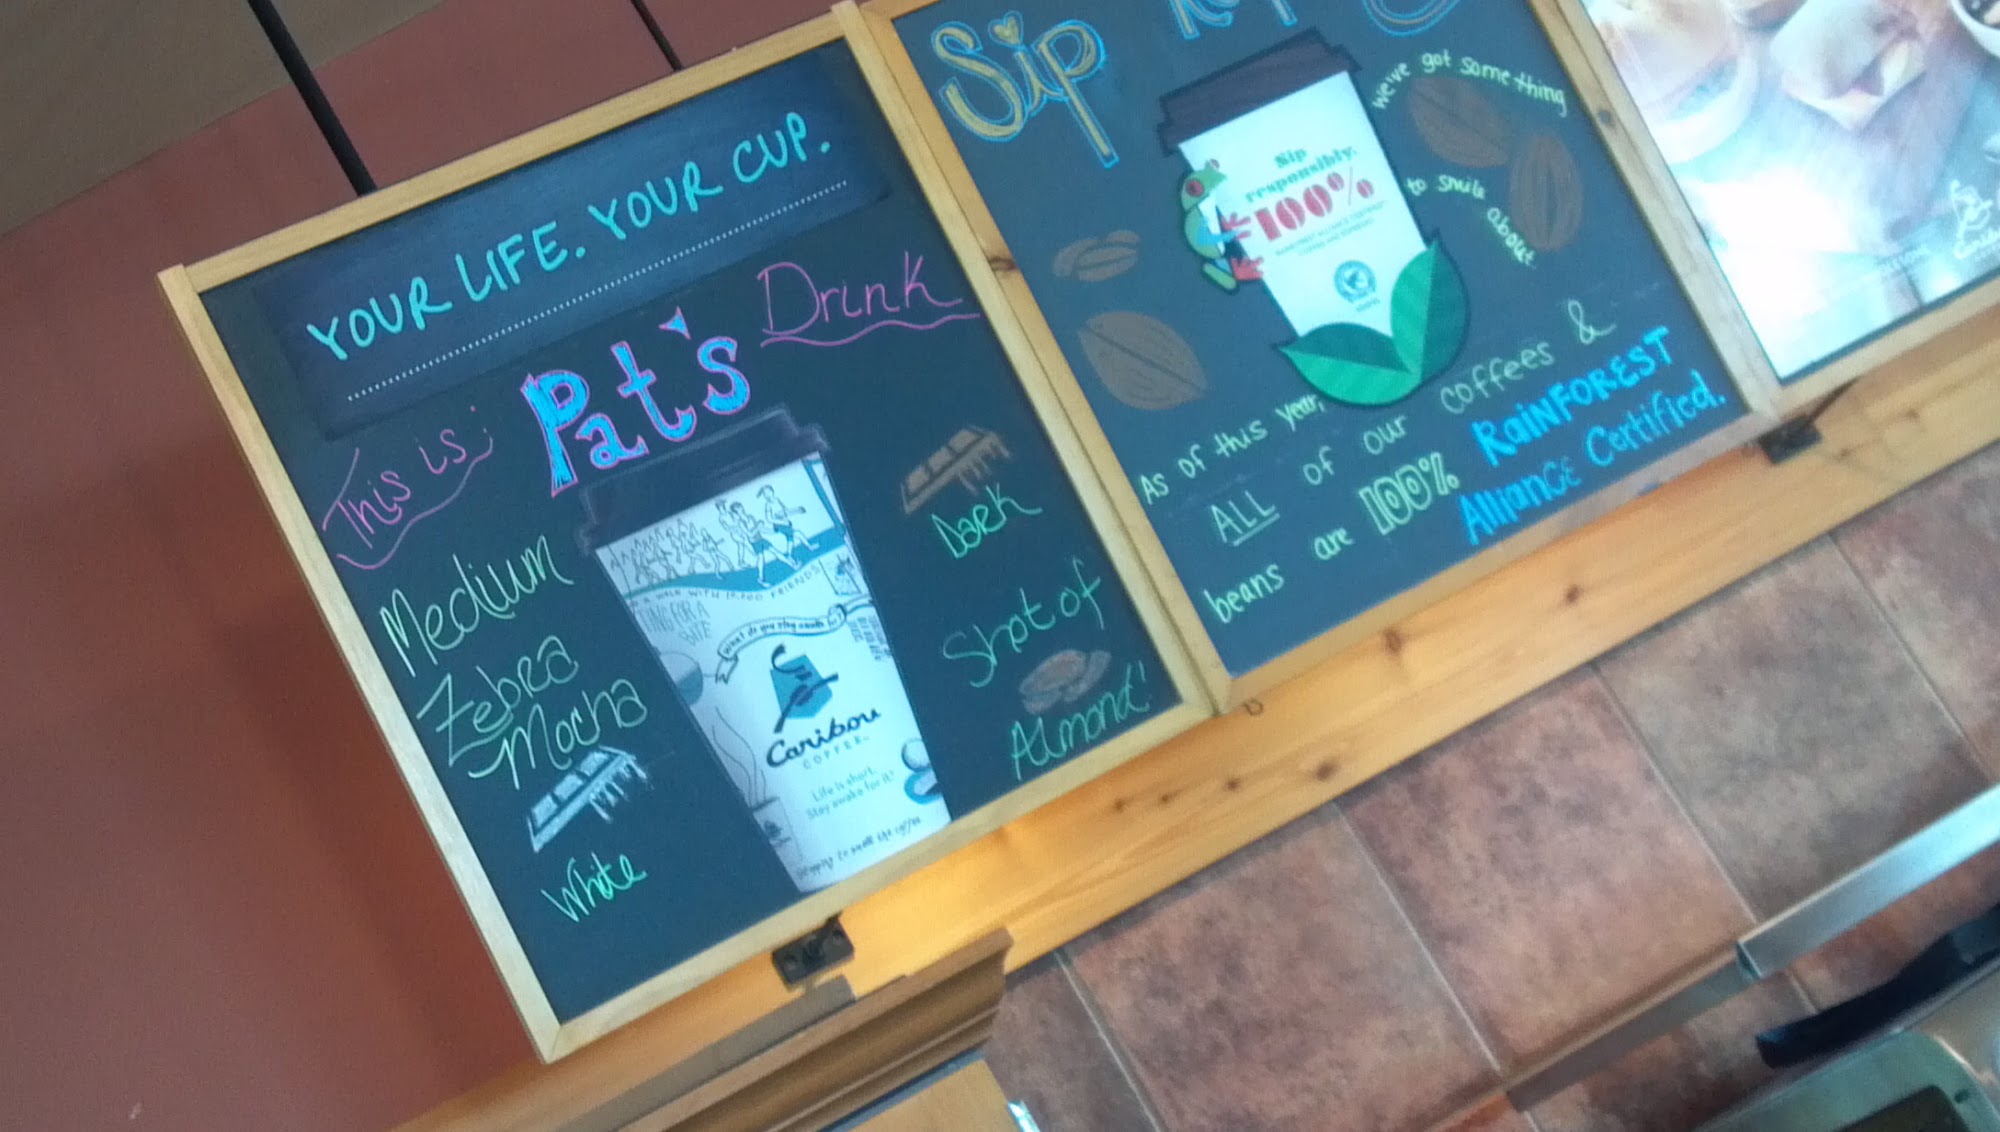 YOUR LIFE. YOUR CUP.
This is:
Pat's
Drink
Medium
Zebra
Mocha
White
Dark
Shot of
Almond!
A WALK WITH 10,000 FRIENDS
ING FOR A
BITE
Caribou
COFFEE
Life is short.
Stay awake for it.
stopping to smell the coffee
Sip
we've got something
to smile about
Sip
responsibly.
100%
RAINFOREST ALLIANCE CERTIFIED
As of this year,
ALL of our coffees &
beans are 100% RAINFOREST
Alliance Certified.